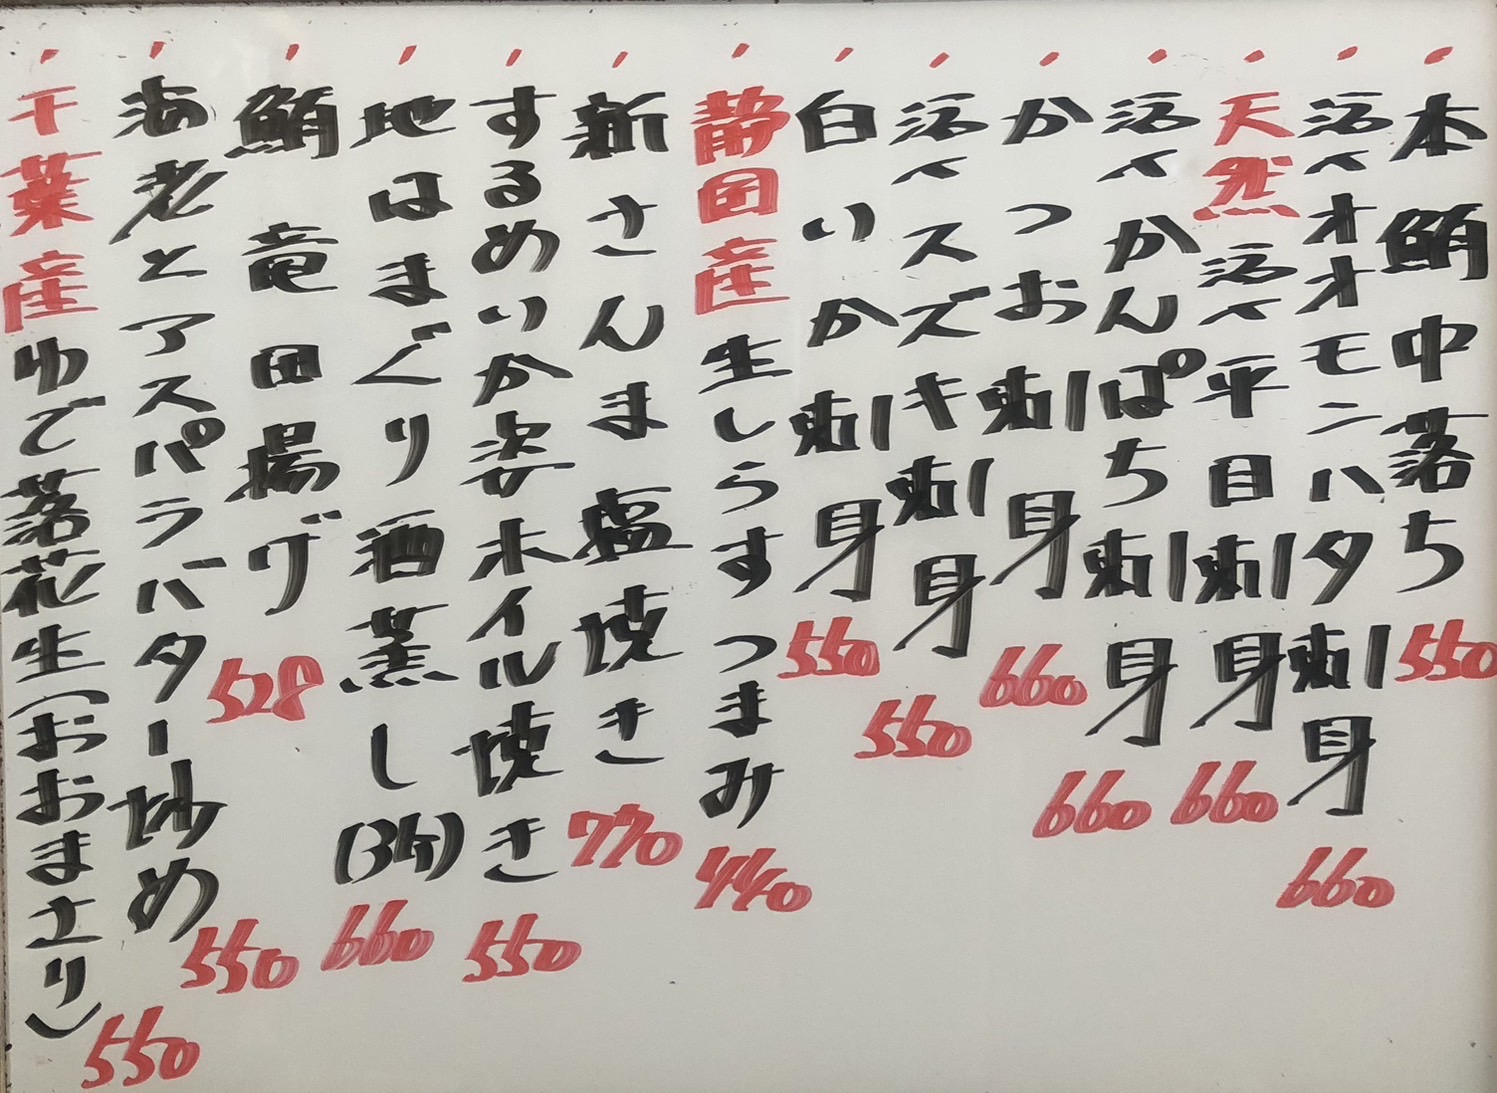 本鮪中落ち 550
活〆オオモンハタ刺身 660
天然活〆平目刺身 660
活〆かんぱち刺身 660
かつお刺身 660
活〆スズキ刺身 550
白いか刺身 550
静岡産生しらすつまみ 440
新さんま塩焼き 770
するめいか姿ホイル焼き 550
地はまぐり酒蒸し(3ケ) 660
鮪竜田揚げ 528
海老とアスパラバター炒め 550
千葉産ゆで落花生(おおまさり) 550